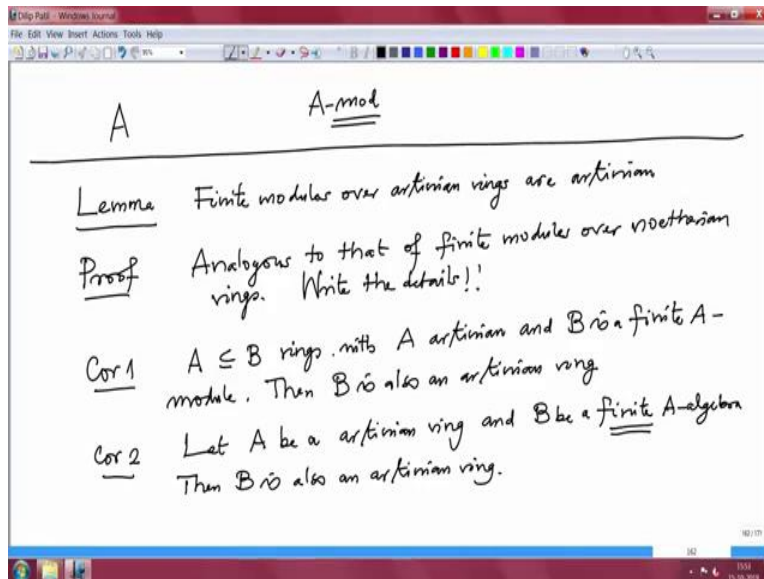 Dilip Patil - Windows Journal
File Edit View Insert Actions Tools Help
A A-mod
Lemma Finite modules over artinian rings are artinian
Proof Analogous to that of finite modules over noetherian
rings. Write the details!!
Cor 1 A ⊆ B rings with A artinian and B is a finite A-
module. Then B is also an artinian ring
Cor 2 Let A be a artinian ring and B be a finite A-algebra
Then B is also an artinian ring.
162